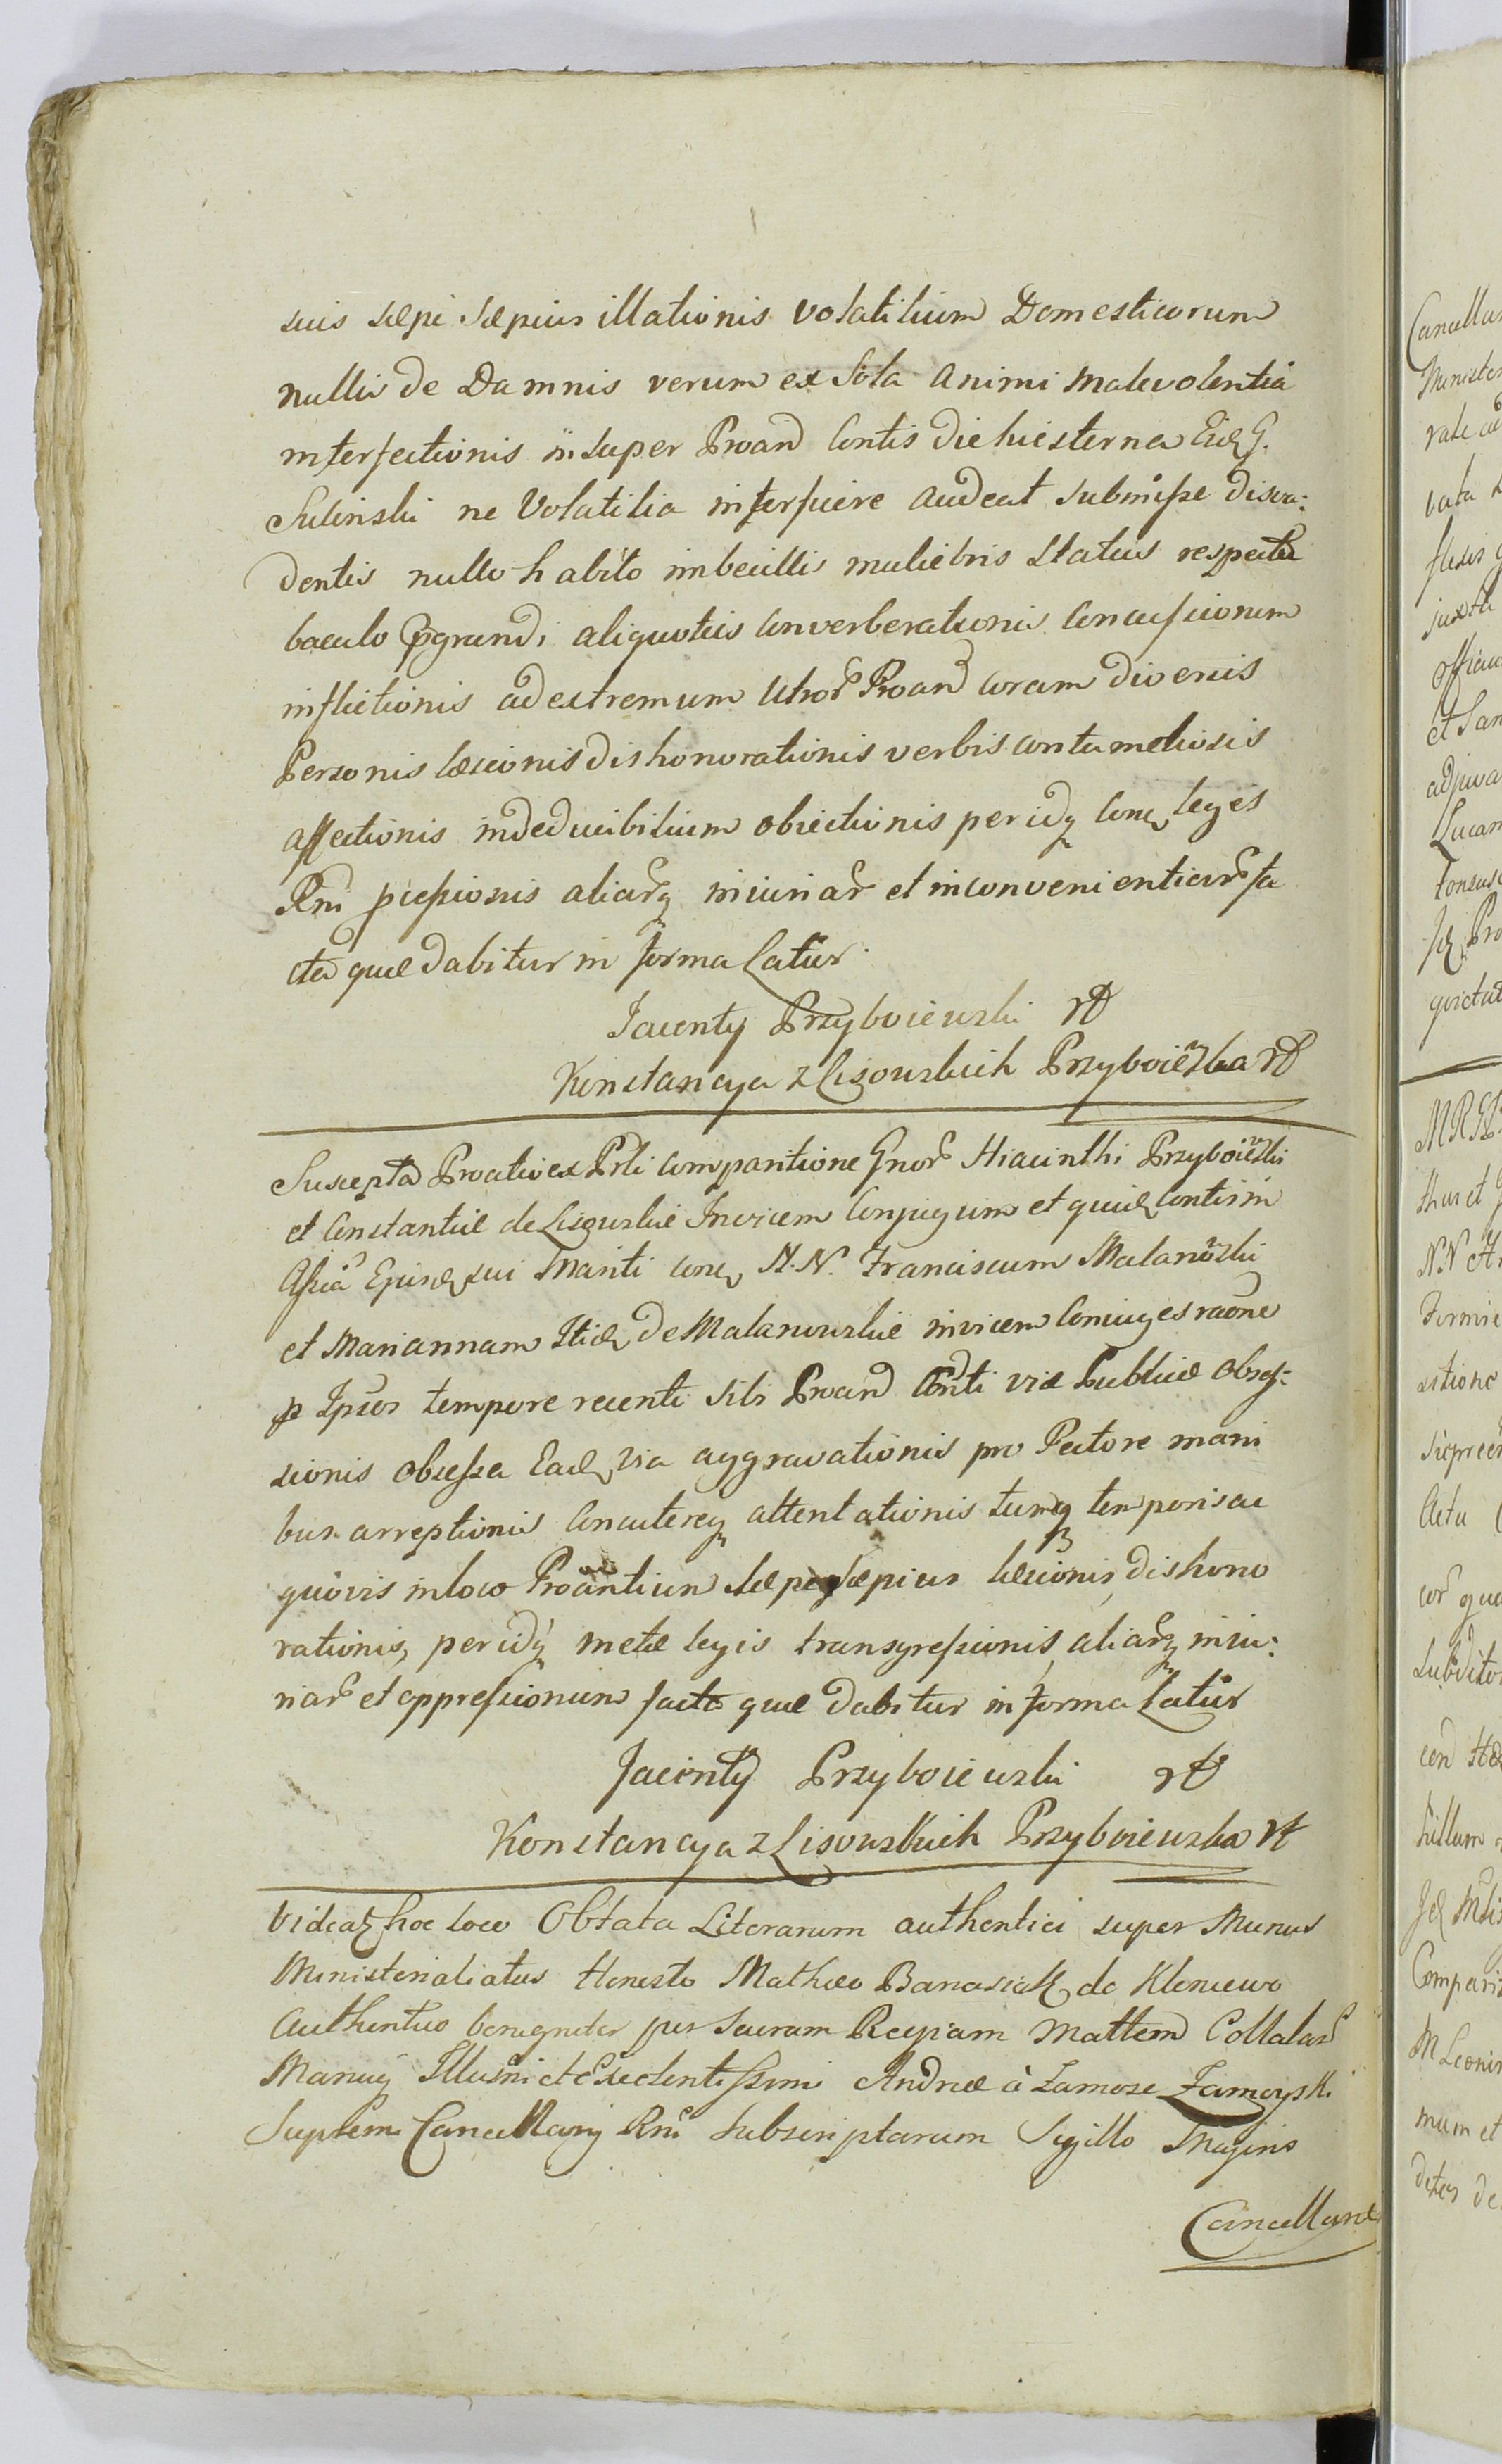 suis sæpe sæpius illationis volatilium Domesticorum
nullis de Damnis verum ex Sola animi malevolentia
interfectionis insuper Proand Contis die hiesterna Eid G.
Sulinski ne Volatilia interficere audeat submisse disva:
dentis nullo habito imbecillis muliebris status respectu
baculo pgrandi aliquoties converberationis Concussionum
inflictionis ad extremum Utror Proand coram diversis
Personis læsionis dishonorationis verbis contumeliosis
affectionis indeducibilium obiectionis per idq conq leges
Rni pressionis aliarq iniuriar et inconvenientiar fa
cta quæ dabitur in forma Latius.
Jacenty Przyboiewski
Konstancya z Lisowskich Przyboiewska
Suscepta Proatio ex Prli comparitione Gnor Hiacinthi Przyboiewski
et Constantiæ de Lisowskie Invicem Conjugum et quid Contis in
Assia Eiusd sui Mariti conq N.N. Franciscum Malanowski
et Mariannam Itid de Malanowskie invicem Coniuges raone
p Ipsos tempore recenti sibi Proand Conti viæ Publicæ obses:
sionis obsessa Ead via aggravationis pro Pectore mani
bus arreptionis Concutereq attentationis tumq temporis ac
quovis in loco Proantium sæpe sæpius læsionis, dishono
rationis, per idq metæ legis transgressionis, aliarq iniu:
riar et oppressionum facta quæ dabitur in forma Latius
Jacenty Przyboiewski
Konstancya z Lisowskich Przyboiewska
Videatq hoc loco Oblata Literarum authentici super Munus
Ministerialiatus Honesto Mathæo Banasiak de Kleniewo
authentico benigniter per Sacram Regiam Mattem Collatar
Manuq Illusmi et Excelentissimi Andreæ à Zamosc Zamoyski
Supremi Cancellarij Rni subscriptarum Sigillo Majoris
Cancellariæ